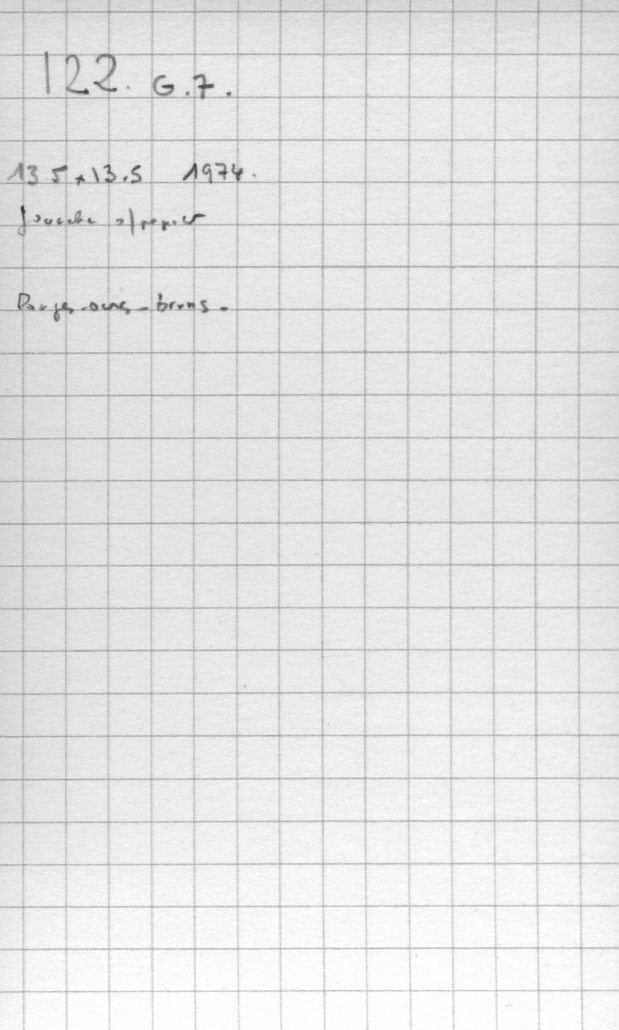 122. G.7.
13.5 x 13.5 1974.
gouache s/papier
Rouges - ocres - bruns -